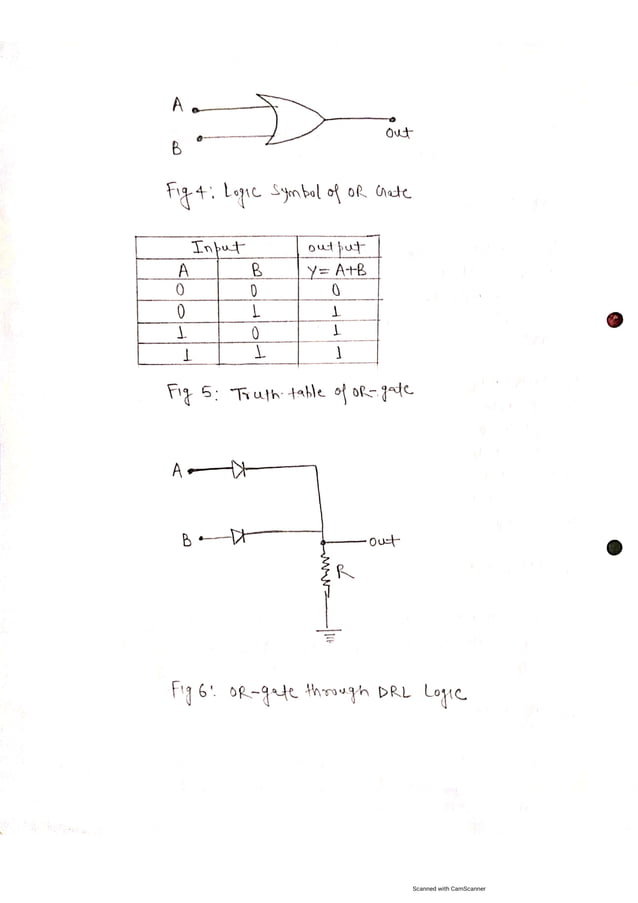 A
B
out
Fig 4: Logic Symbol of OR Gate
Input output
A B Y= A+B
0 0 0
0 1 1
1 0 1
1 1 1
Fig 5: Truth-table of OR-gate
A
B out
R
Fig 6: OR-gate through DRL Logic
Scanned with CamScanner